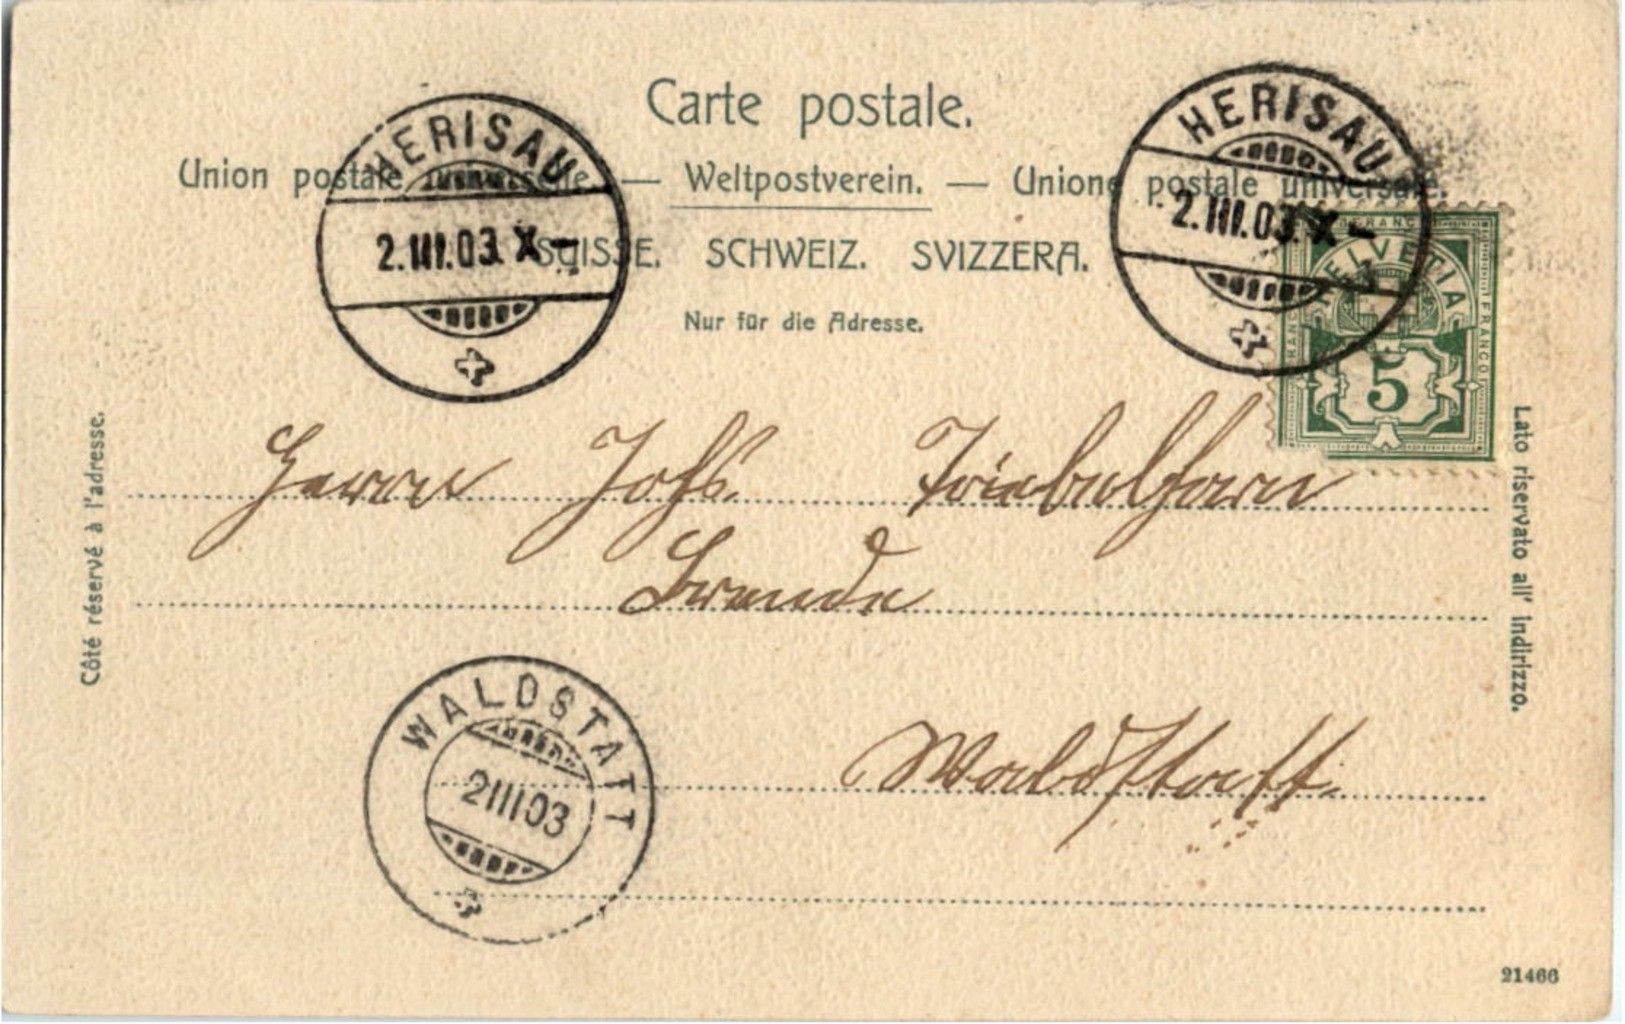 Carte postale.
Union postale universelle. — Weltpostverein. — Unione postale universale.
SUISSE. SCHWEIZ. SVIZZERA.
Nur für die Adresse.
HERISAU
2.III.03.X—
HERISAU
2.III.03.X—
HELVETIA
FRANCO
FRANCO
FRANCO
5
Côté réservé à l'adresse.
Lato riservato all' indirizzo.
Herrn Johs.
Waldstatt.
WALDSTATT
2III03
21466